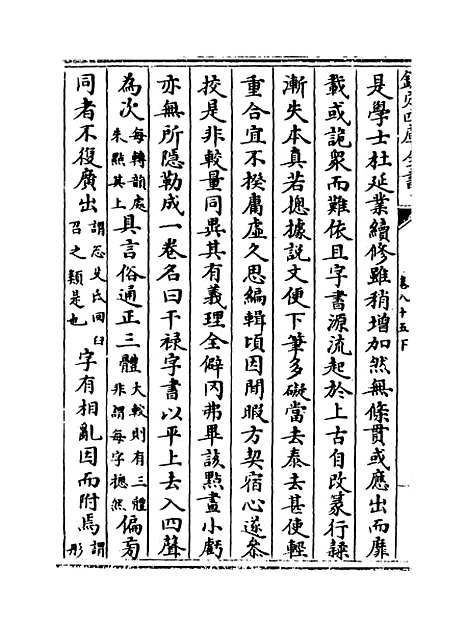 欽定四庫全書
卷八十五下
是學士杜延業續修雖稍增加然無條貫或應出而靡
載或詭衆而難依且字書源流起於上古自改篆行隸
漸失本真若揔據説文便下筆多礙當去泰去甚使輕
重合宜不揆庸虛久思編輯頃因閒暇方契宿心遂叅
挍是非較量同異其有義理全僻罔弗畢該點畫小虧
亦無所隱勒成一卷名曰干禄字書以平上去入四聲
為次每轉韻處朱點其上具言俗通正三體大較則有三體非謂每字揔然偏旁
同者不復廣出謂忩殳氐回臼召之類是也字有相亂因而附焉謂彤